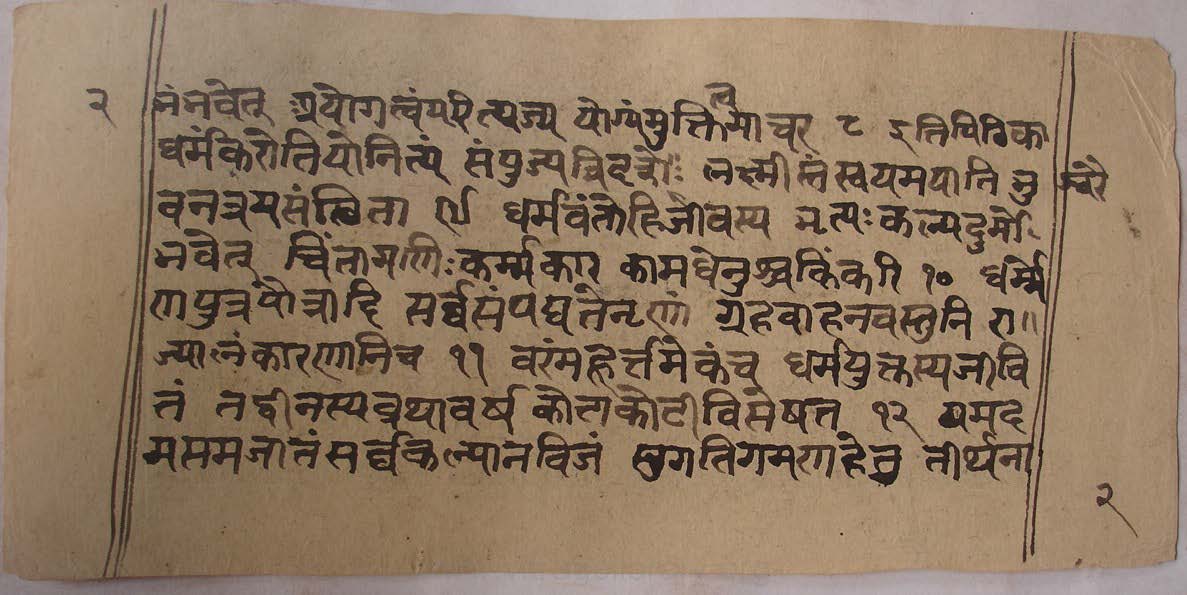 २
नंभवेत् अयोगत्वंपरित्यज्य योग्यंमुक्तित्वमाचर ८ इतिपिठिका
धर्मंकरोतियोनित्यं संपुज्य लक्ष्मीस्तंस्वयमयाति भु
वनत्रयसंस्थिता ९ धर्मवंतोहिजीवस्य भृत्यःकल्पद्रुमो
भवेत् चिंतामणीःकर्म्मकार कामधेनुश्चकिंकरी १० धर्म्मे
णपुत्रपौत्राहि सर्वसंपद्यतेनृणां ग्रहवाहनवस्तुनि रा
ज्यालंकारणानिच ११ वरंमहूर्त्तमेकंच धर्मयुक्तस्यजीवि
तं तद्दीनस्यवृथावर्ष कोटाकोटीविसेषत १२ यमद
मसमजातंसर्व्वकल्यानविजं सुगतिगमणहेतु तीर्थना
२